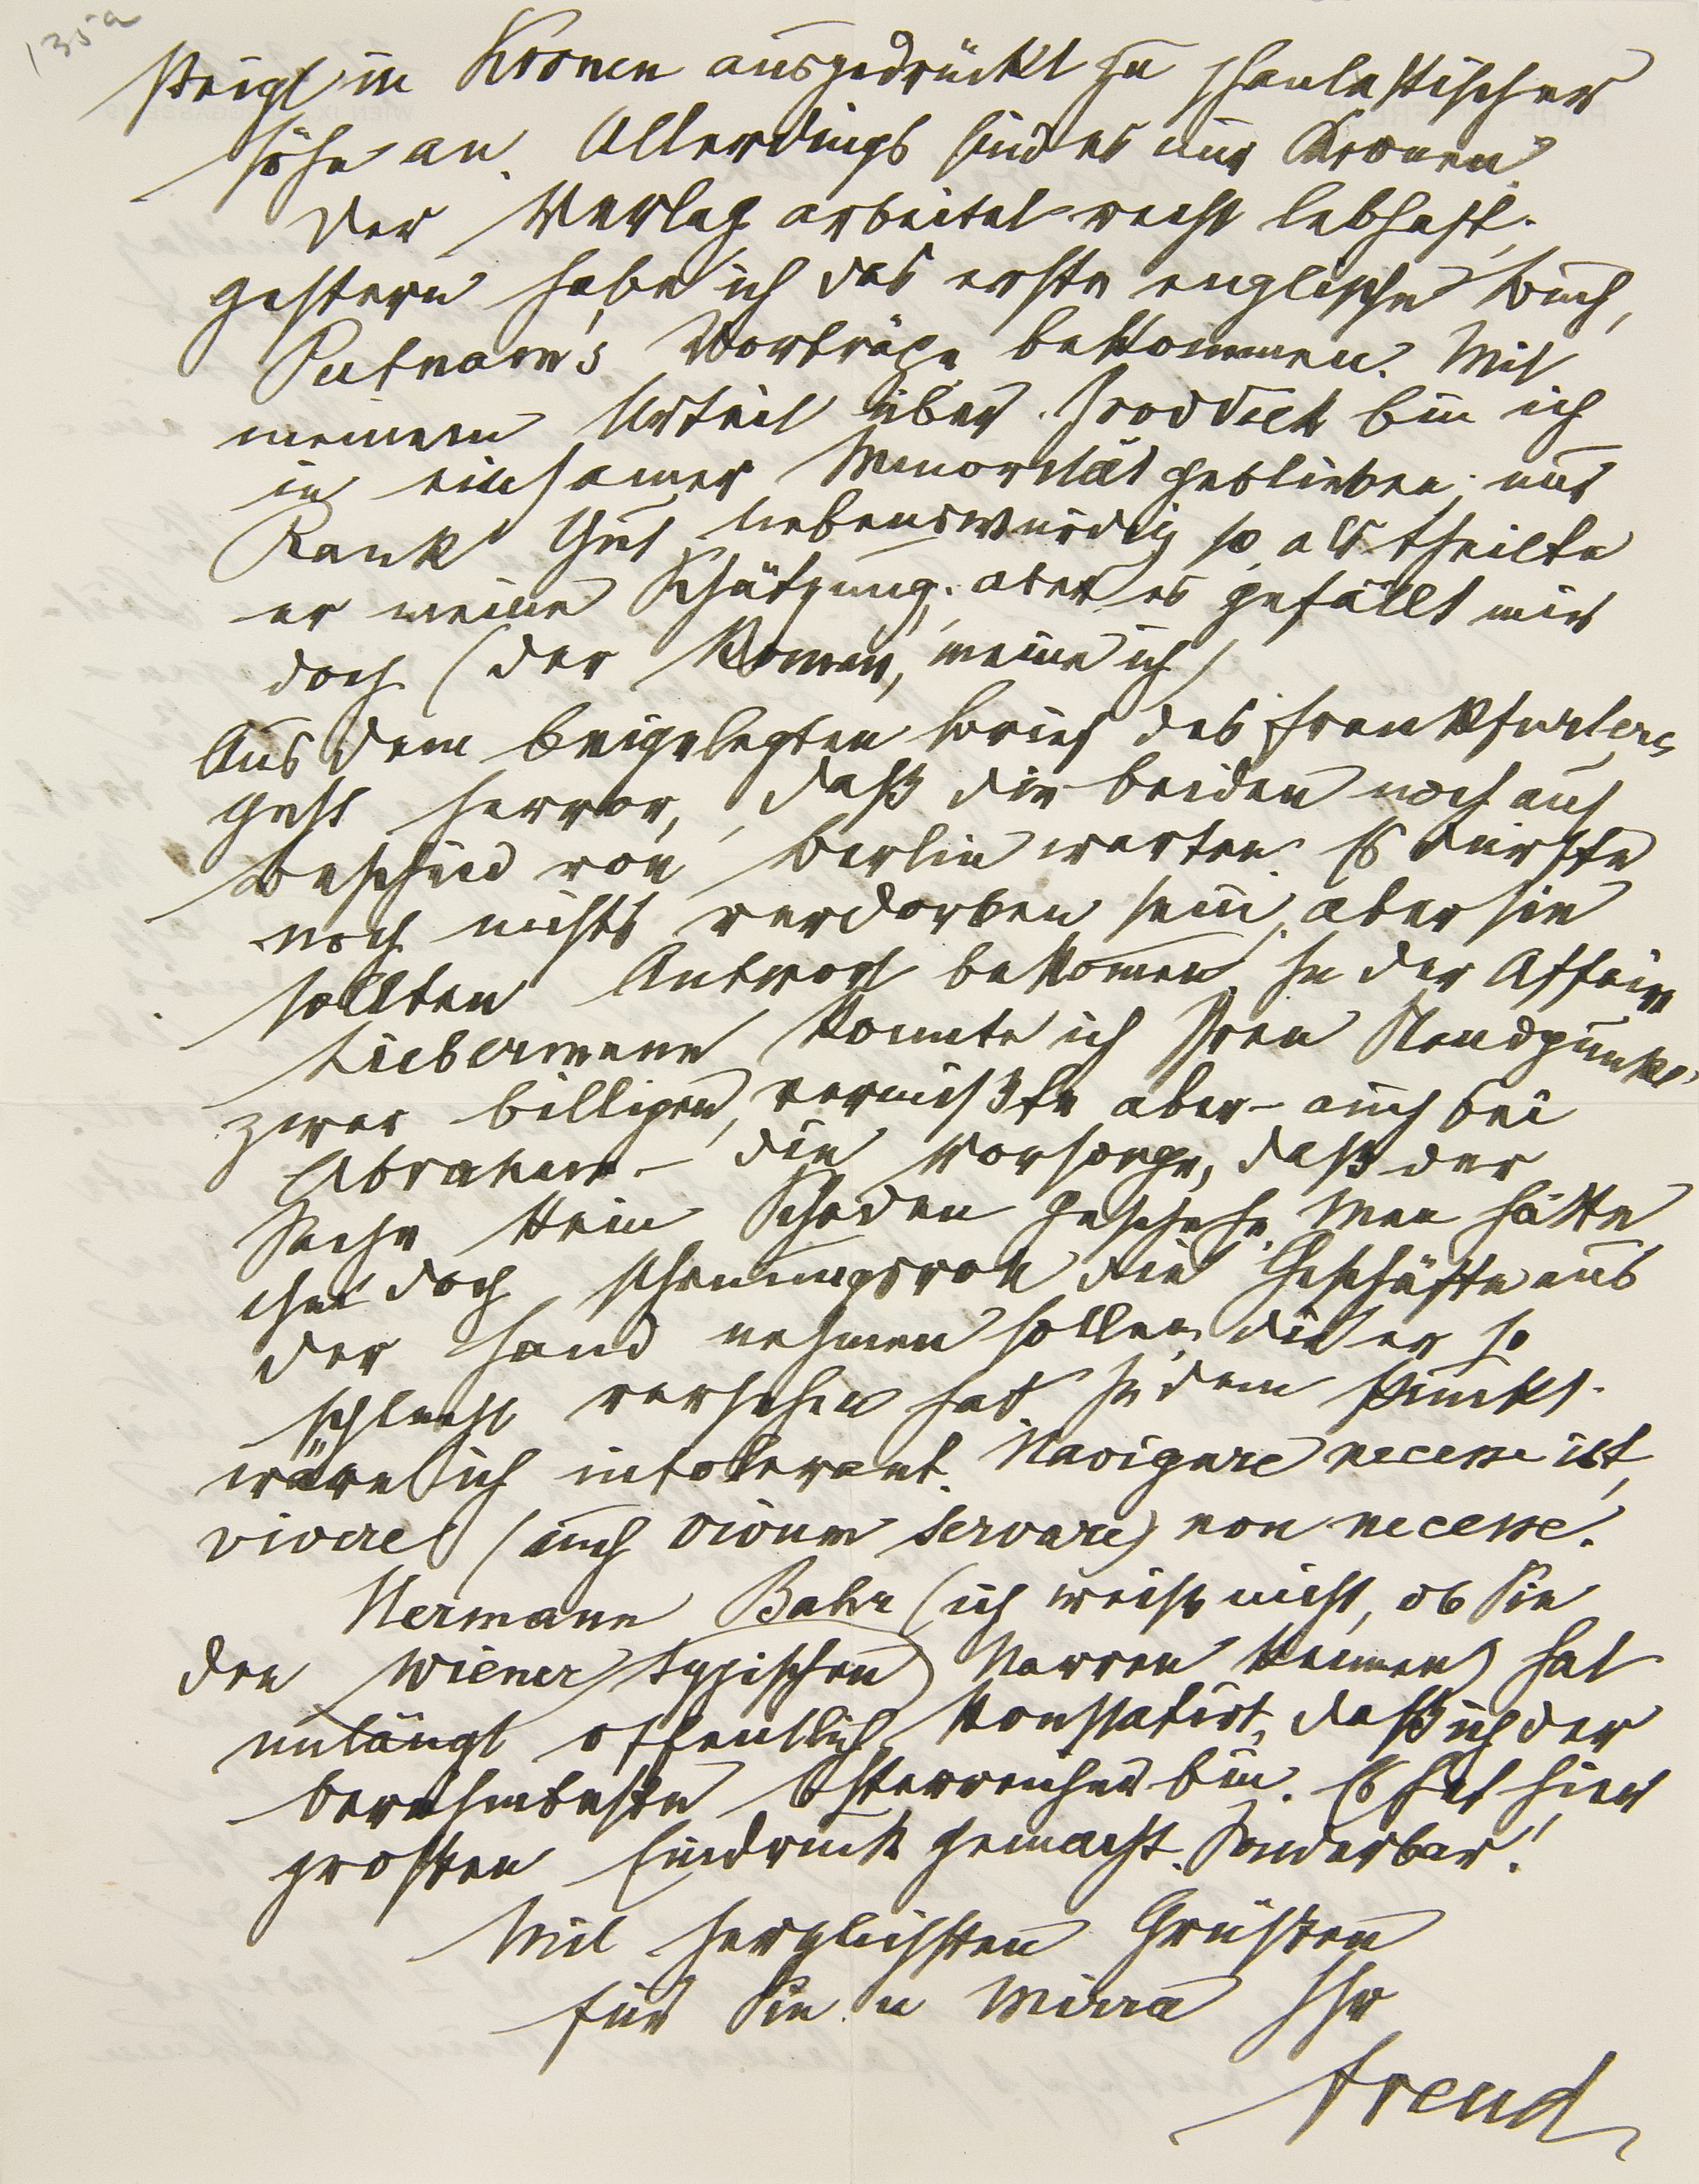 135a
steigt in Kronen ausgedrückt zu phantastischer
Höhe an. Allerdings sind es nur Kronen.
Der Verlag arbeitet recht lebhaft;
gestern habe ich das erste englische Buch,
Putnam's Vorträge bekommen. Mit
meinem Urteil über Groddeck bin ich
in einsamer Minorität geblieben; nur
Rank thut liebenswürdig so, als theilte
er meine Schätzung; aber es gefällt mir
doch (der Roman, meine ich)
Aus dem beigelegten Brief des Frankfurters
geht hervor, daß die beiden noch auf
Bescheid von Berlin warten. Es dürfte
noch nichts verdorben sein, aber sie
sollten Antwort bekommen. In der Affaire
Liebermann konnte ich Ihren Standpunkt
zwar billigen, vermißte aber – auch bei
Abraham – die Vorsorge, daß der
Sache kein Schaden geschehe. Man hätte
ihm doch schonungsvoll die Geschäfte aus
der Hand nehmen sollen, die er so
schlecht versehen hat. In dem Punkt
wäre ich intolerant. Navigare necesse est,
vivere (auch vivum servare) non necesse.
Hermann Bahr (ich weiss nicht, ob Sie
den Wiener typischen Narren kennen) hat
unlängst öffentlich konstatirt, daß ich der
berühmteste Österreicher bin. Es hat hier
grossen Eindruck gemacht. Sonderbar!
Mit herzlichsten Grüssen
für Sie u Mirra Ihr
Freud